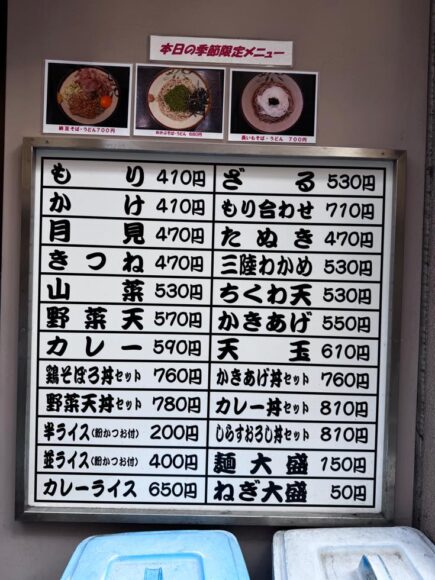 本日の季節限定メニュー
納豆そば・うどん700円
めかぶそば・うどん 680円
長いもそば・うどん 700円
もり 410円
ざる 530円
かけ 410円
もり合わせ 710円
月見 470円
たぬき 470円
きつね 470円
三陸わかめ 530円
山菜 530円
ちくわ天 530円
野菜天 570円
かきあげ 550円
カレー 590円
天玉 610円
鶏そぼろ丼セット 760円
かきあげ丼セット 760円
野菜天丼セット 780円
カレー丼セット 810円
半ライス(粉かつお付) 200円
しらすおろし丼セット 810円
並ライス(粉かつお付) 400円
麺大盛 150円
カレーライス 650円
ねぎ大盛 50円